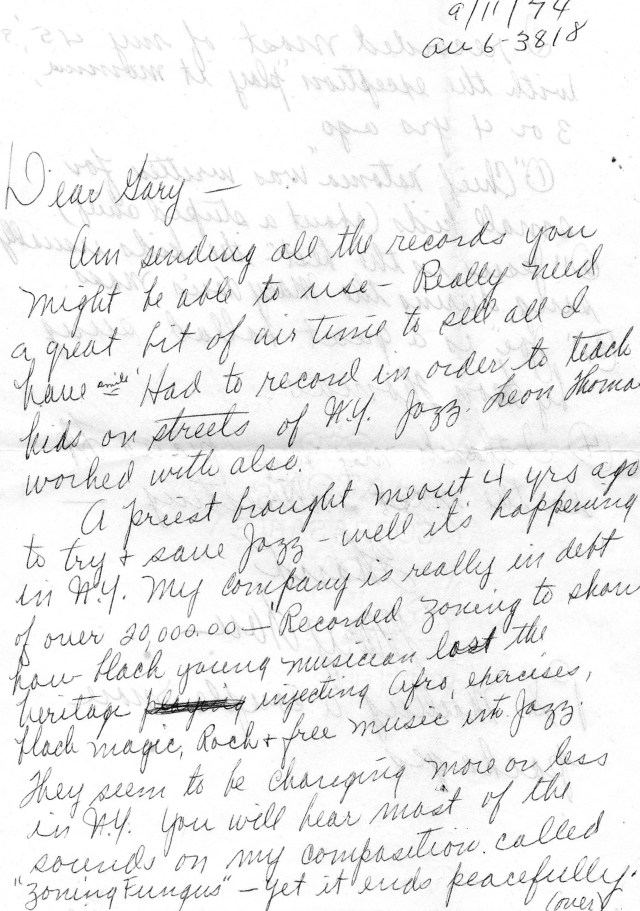 9/11/74
au 6-3818
Dear Gary —
Am sending all the records you
might be able to use – Really need
a great bit of air time to sell all I
have smile Had to record in order to teach
kids on streets of N.Y. Jazz. Leon Thomas
worked with also.
A priest brought me out 4 yrs ago
to try + save Jazz – well it's happening
in N.Y. My company is really in debt
of over 20,000.00 – Recorded Zoning to show
how black young musician lost the
heritage injecting Afro, exercises,
black magic, Rock + free music into Jazz.
They seem to be changing more or less
in N.Y. You will hear most of the
sounds on my composition called
"Zoning Fungus" – yet it ends peacefully.
(over)